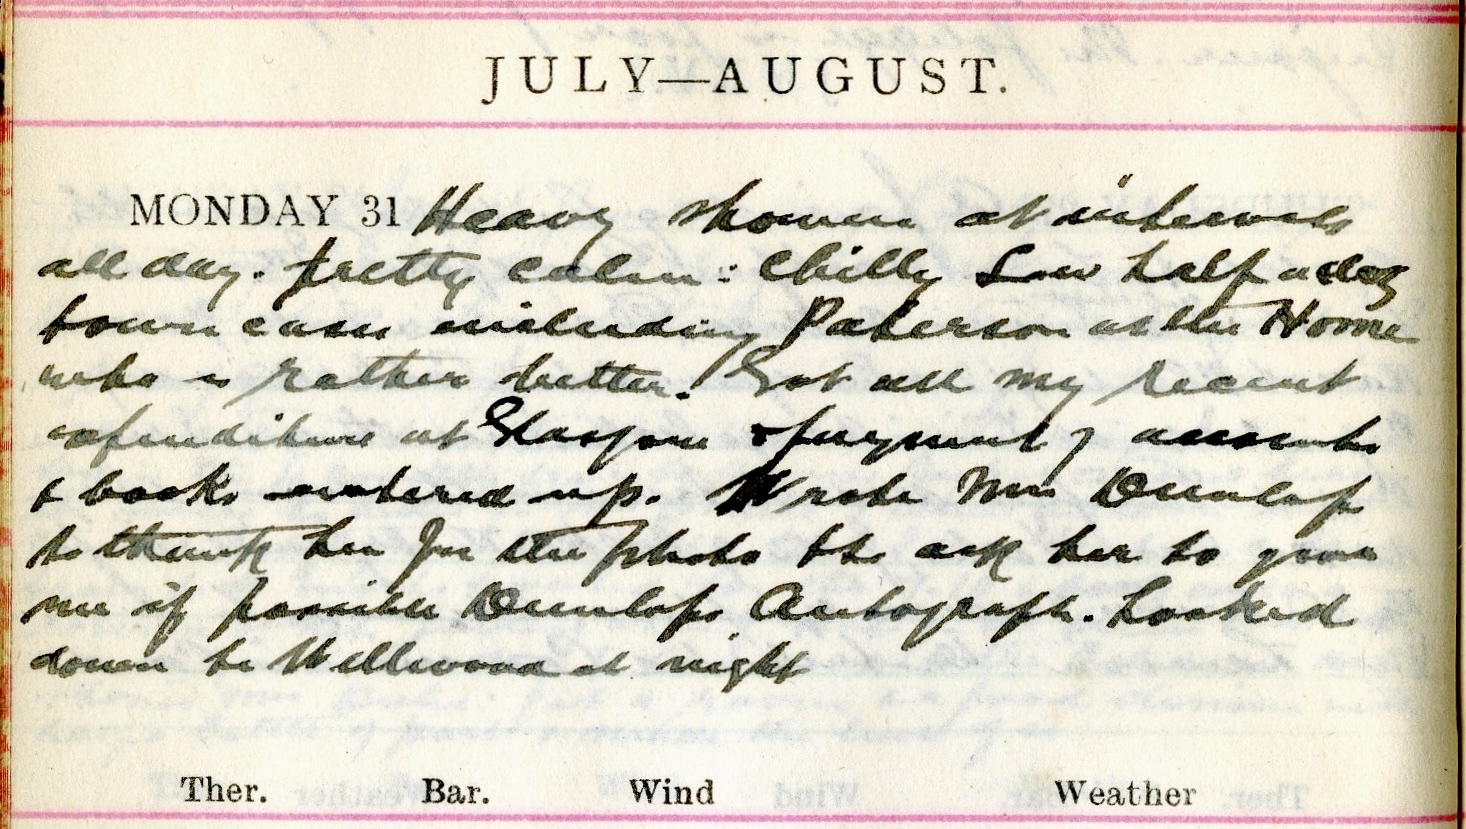 JULY—AUGUST.
MONDAY 31 Heavy showers at intervals
all day. Pretty calm: Chilly Saw half a doz
town cases including Paterson at the Home
who is rather better. Got all my recent
expenditure at Glasgow & payment of accounts
& books entered up. Wrote Mrs Dunlop
to thank her for the photo & to ask her to give
me if possible Dunlop's Autograph. Looked
down to Wellwood at night
Ther. Bar. Wind Weather